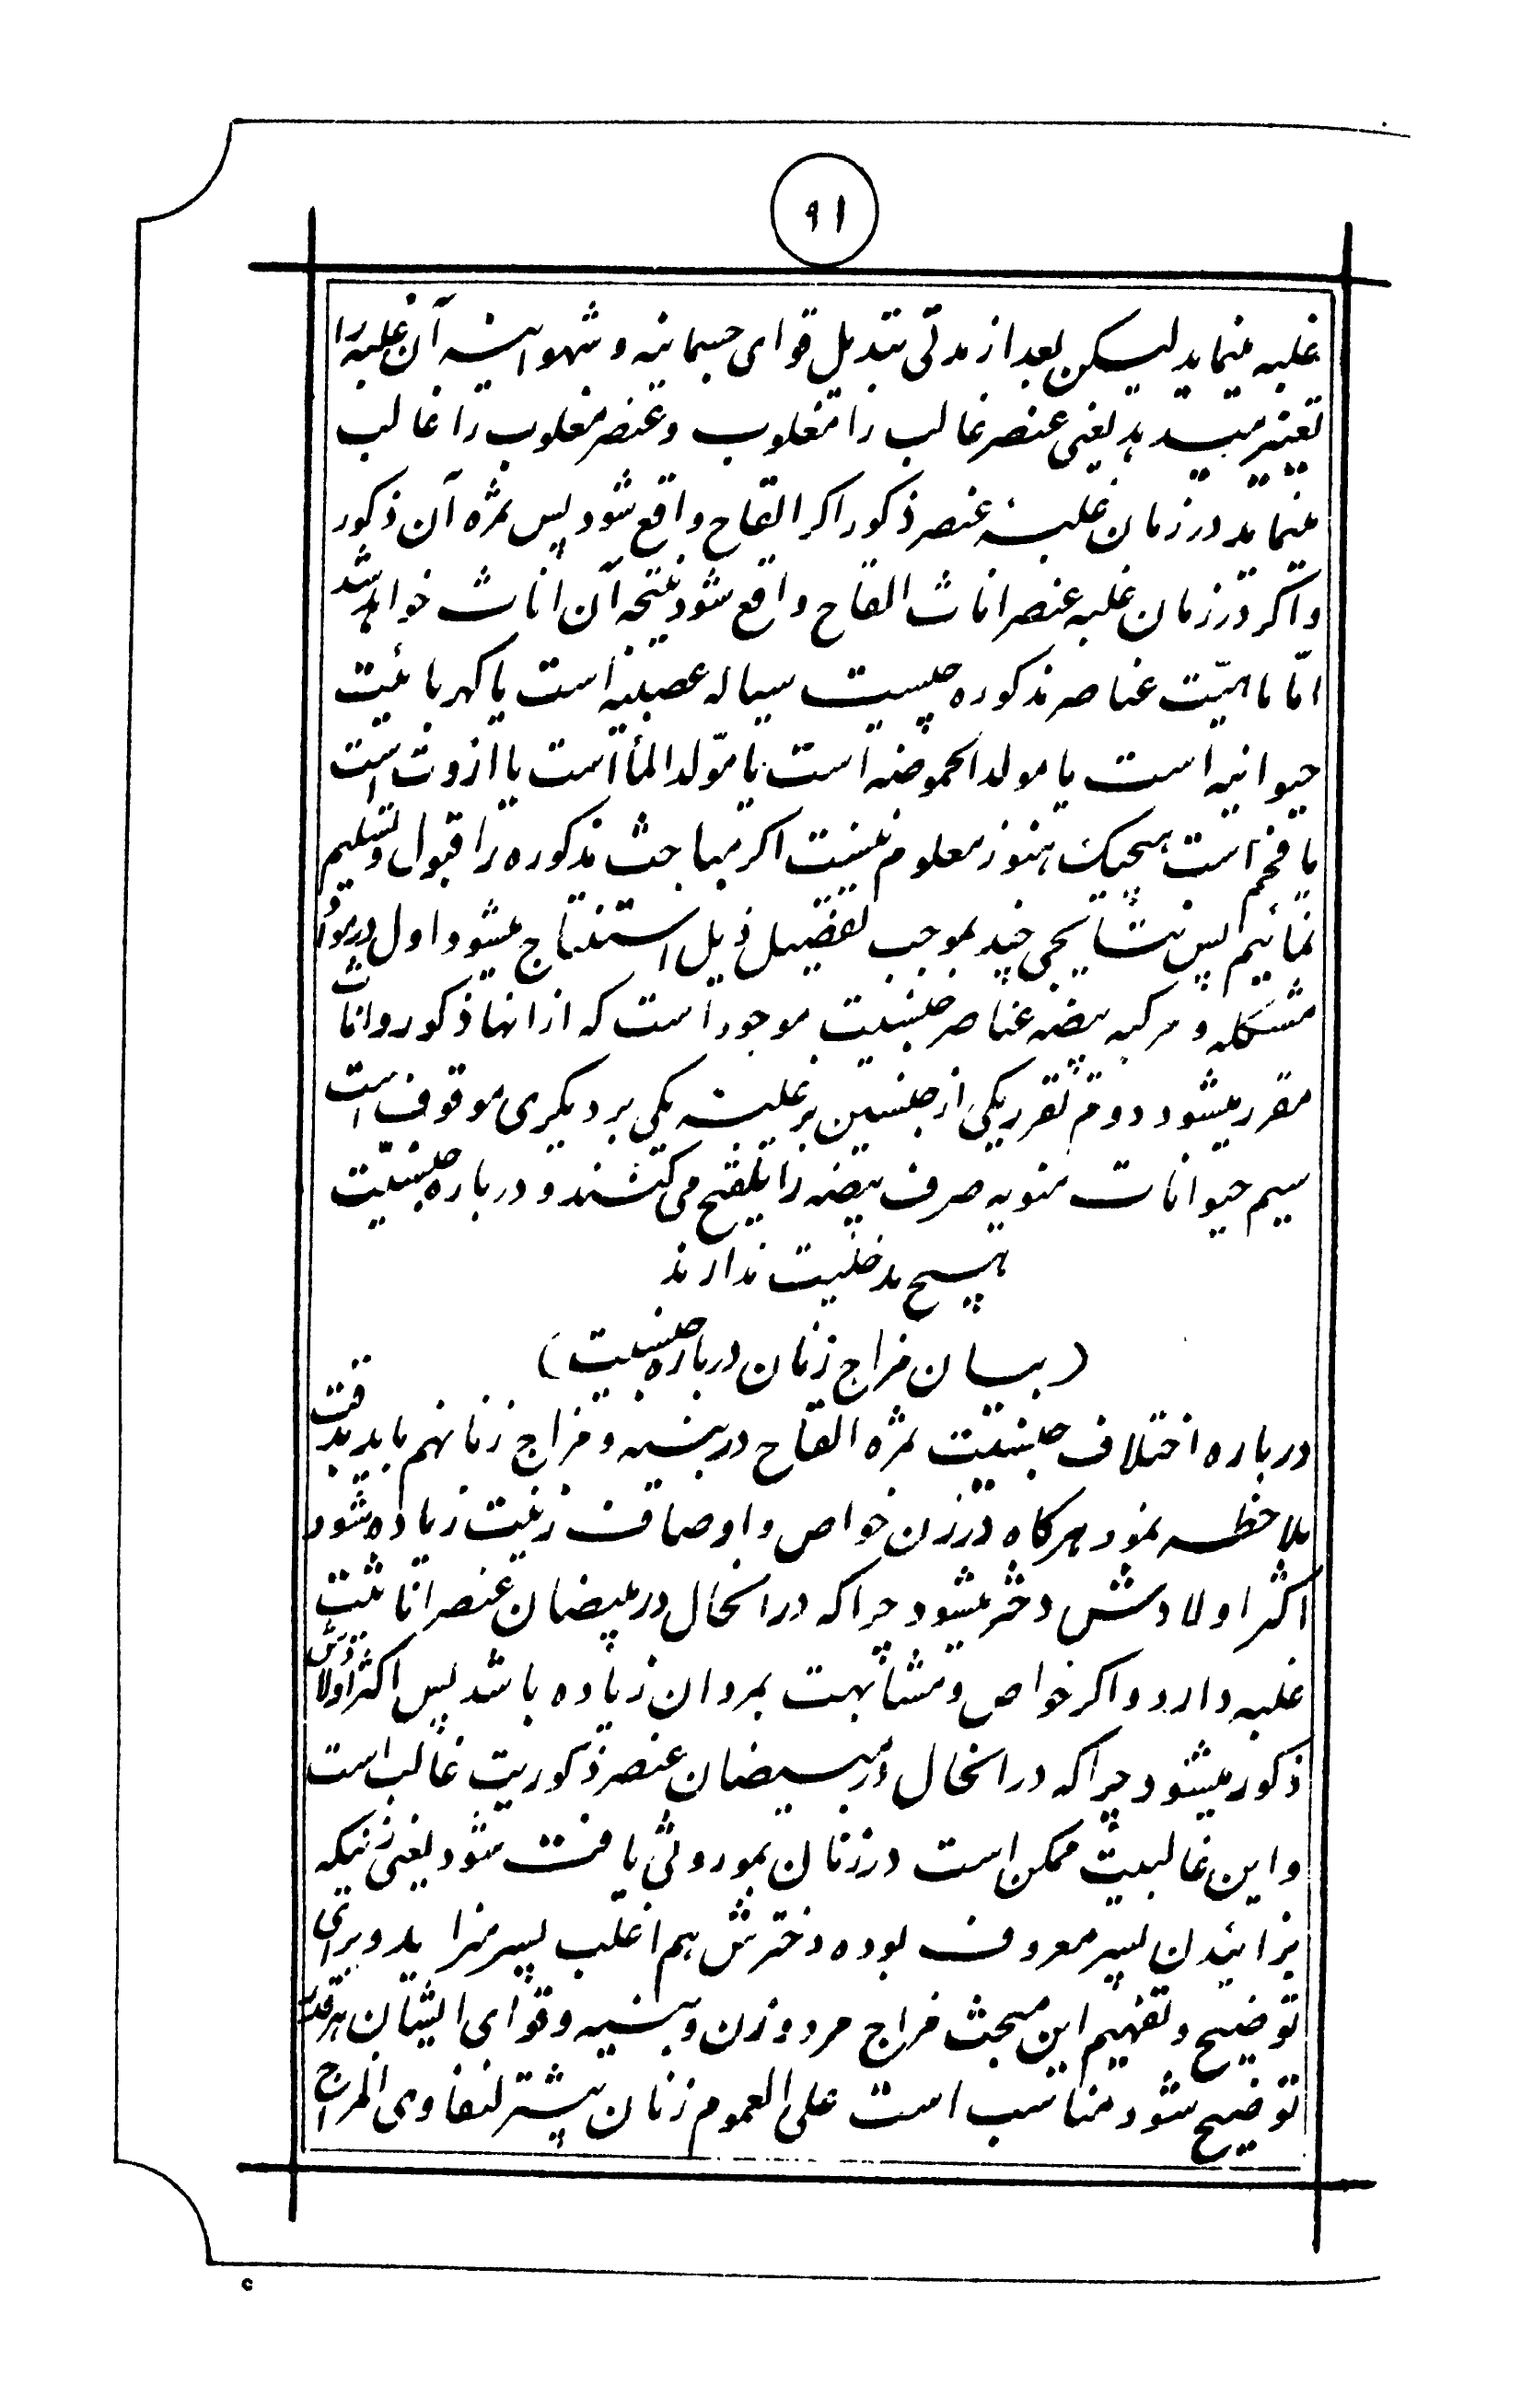 ۹۱
غلبه مینماید لیکن بعد از مدتی تبدیل قوای جسمانیه و شهوانیه آن غلبه را
تغییر میدهد یعنی عنصر غالب را مغلوب و عنصر مغلوب را غالب
مینماید در زمان غلبه عنصر ذکور اکر القاح واقع شود پس ثمره آن ذکور
و اکر در زمان غلبه عنصر اناث القاح واقع شود نتیجه آن اناث خواهد شد
امّا ماهیّت عناصر مذکوره چیست سیاله عصبیه است یا کهربائیت
حیوانیه است یا مولد الحموضه است یا مولّد الماء است یا ازوت است
یا فحم است هیچیک هنوز معلوم نیست اکر مباحث مذکوره را قبول و تسلیم
نمائیم پس نتایجی چند بموجب تفضیل ذیل استنتاج میشود اول در مواد
مشکله و مرکبه بیضه عناصر جنسیت موجود است که از انها ذکور و اناث
مقرر میشود دوم تقرر یکی از جنسین بر غلبه یکی بر دیکری موقوف است
سیم حیوانات منویه صرف بیضه را تلقیح می کنند و درباره جنسیّت
هیچ مدخلیت ندارند
(بیان مزاج زنان درباره جنسیت)
درباره اختلاف جنسیت ثمره القاح در بنیه و مزاج زنانهم باید بدقت
ملاحظه نمود هرکاه در زن خواص و اوصاف زنیت زیاده شود
اکثر اولادش دختر میشود چراکه در انحال در مبیضان عنصر اناثیت
غلبه دارد و اکر خواص و مشابهت بمردان زیاده باشد پس اکثر اولادش
ذکور میشود چراکه در انحال در مبیضان عنصر ذکوریت غالب است
و این غالبیت ممکن است در زنان بموروثی یافت شود یعنی زنیکه
بزائیدن پسر معروف بوده دخترش هم اغلب پسر میزاید و برای
توضیح و تفهیم این مبحث مزاج مرد و زن و بنیه و قوای ایشان هرقدر
توضیح شود مناسب است علی العموم زنان بیشتر لنفاوی المزاج